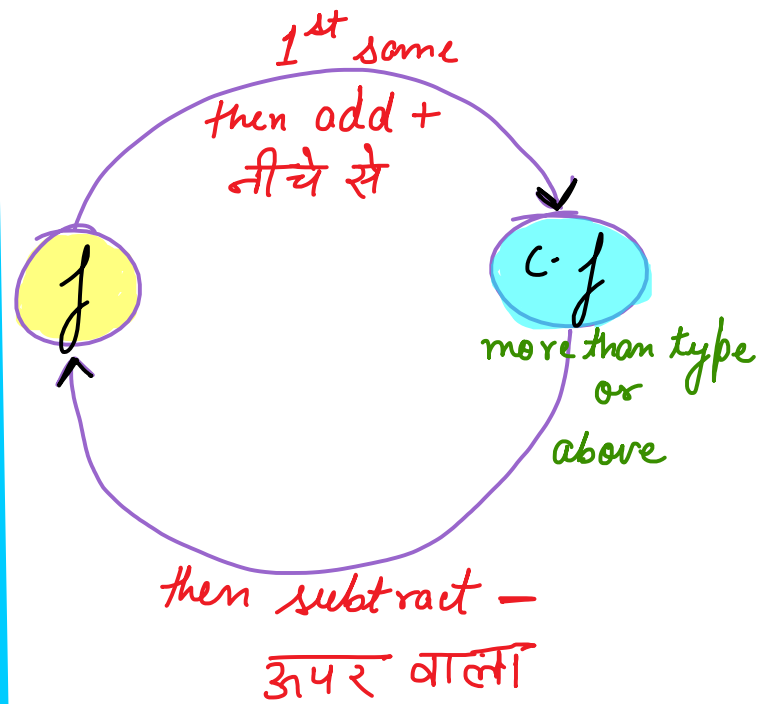 1st same
then add +
नीचे से
f
c.f
more than type
or
above
then subtract -
ऊपर वाला